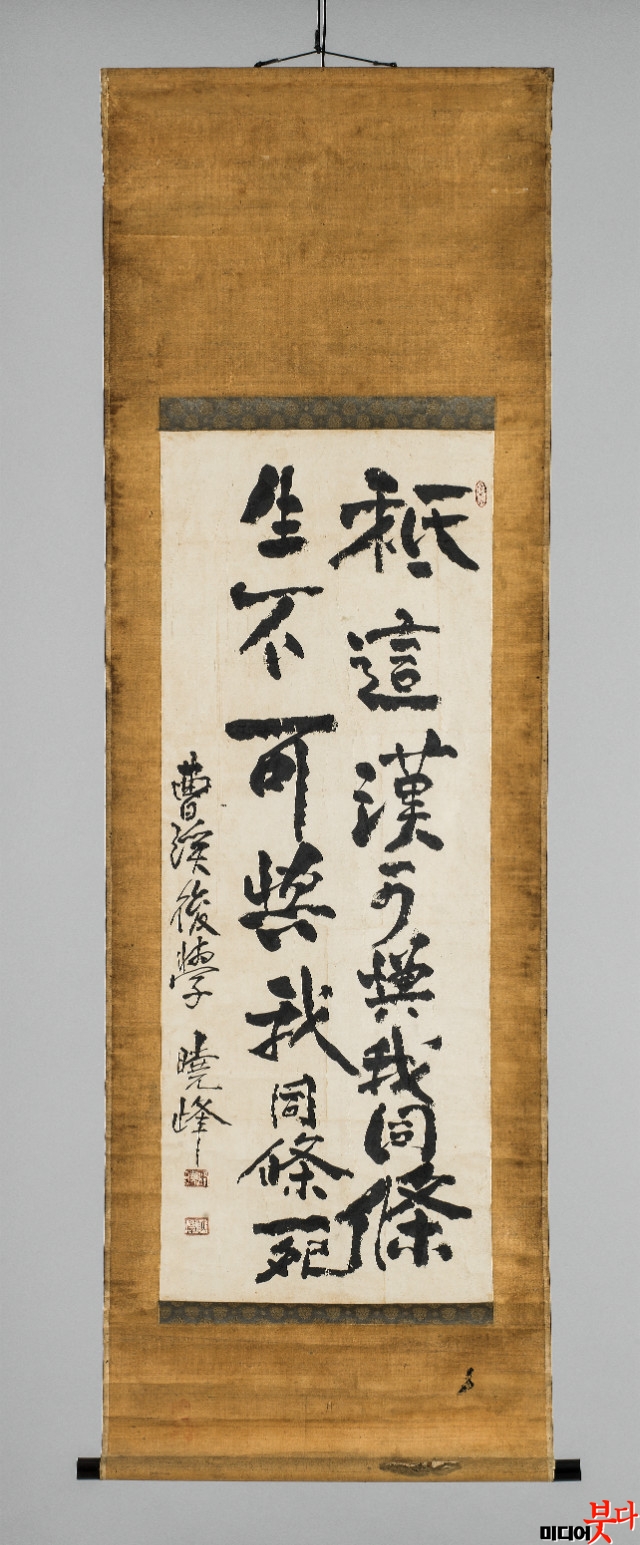 秪這漢可與我同條
生不可與我同條死
曹溪後學 曉峰
미디어붓다